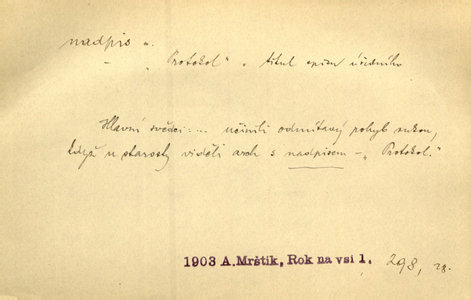 nadpis m.
- „Protokol“, titul spisu úředního
Hlavní svědci ... učinili odmítavý pohyb rukou,
když u starosty viděli arch s nadpisem - „Protokol.“
1903 A. Mrštík, Rok na vsi 1. 298,